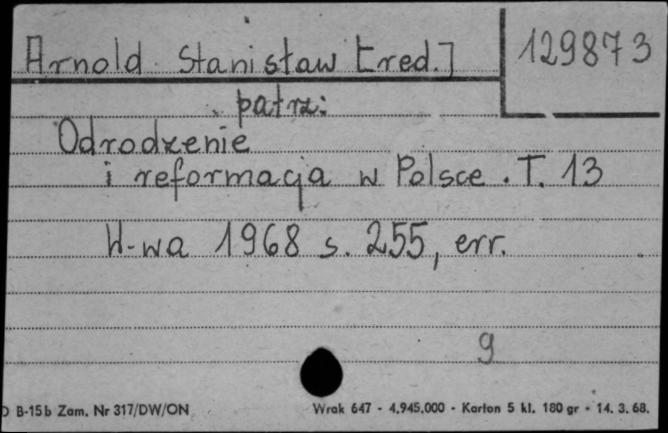 Arnold Stanisław [red.]
129873
patrz:
Odrodzenie
i reformacja w Polsce. T. 13
W-wa 1968 s. 255, err.
9
B-15b Zam. Nr 317/DW/ON
Wrak 647 - 4.945.000 - Karton 5 kl. 180 gr - 14. 3. 68.